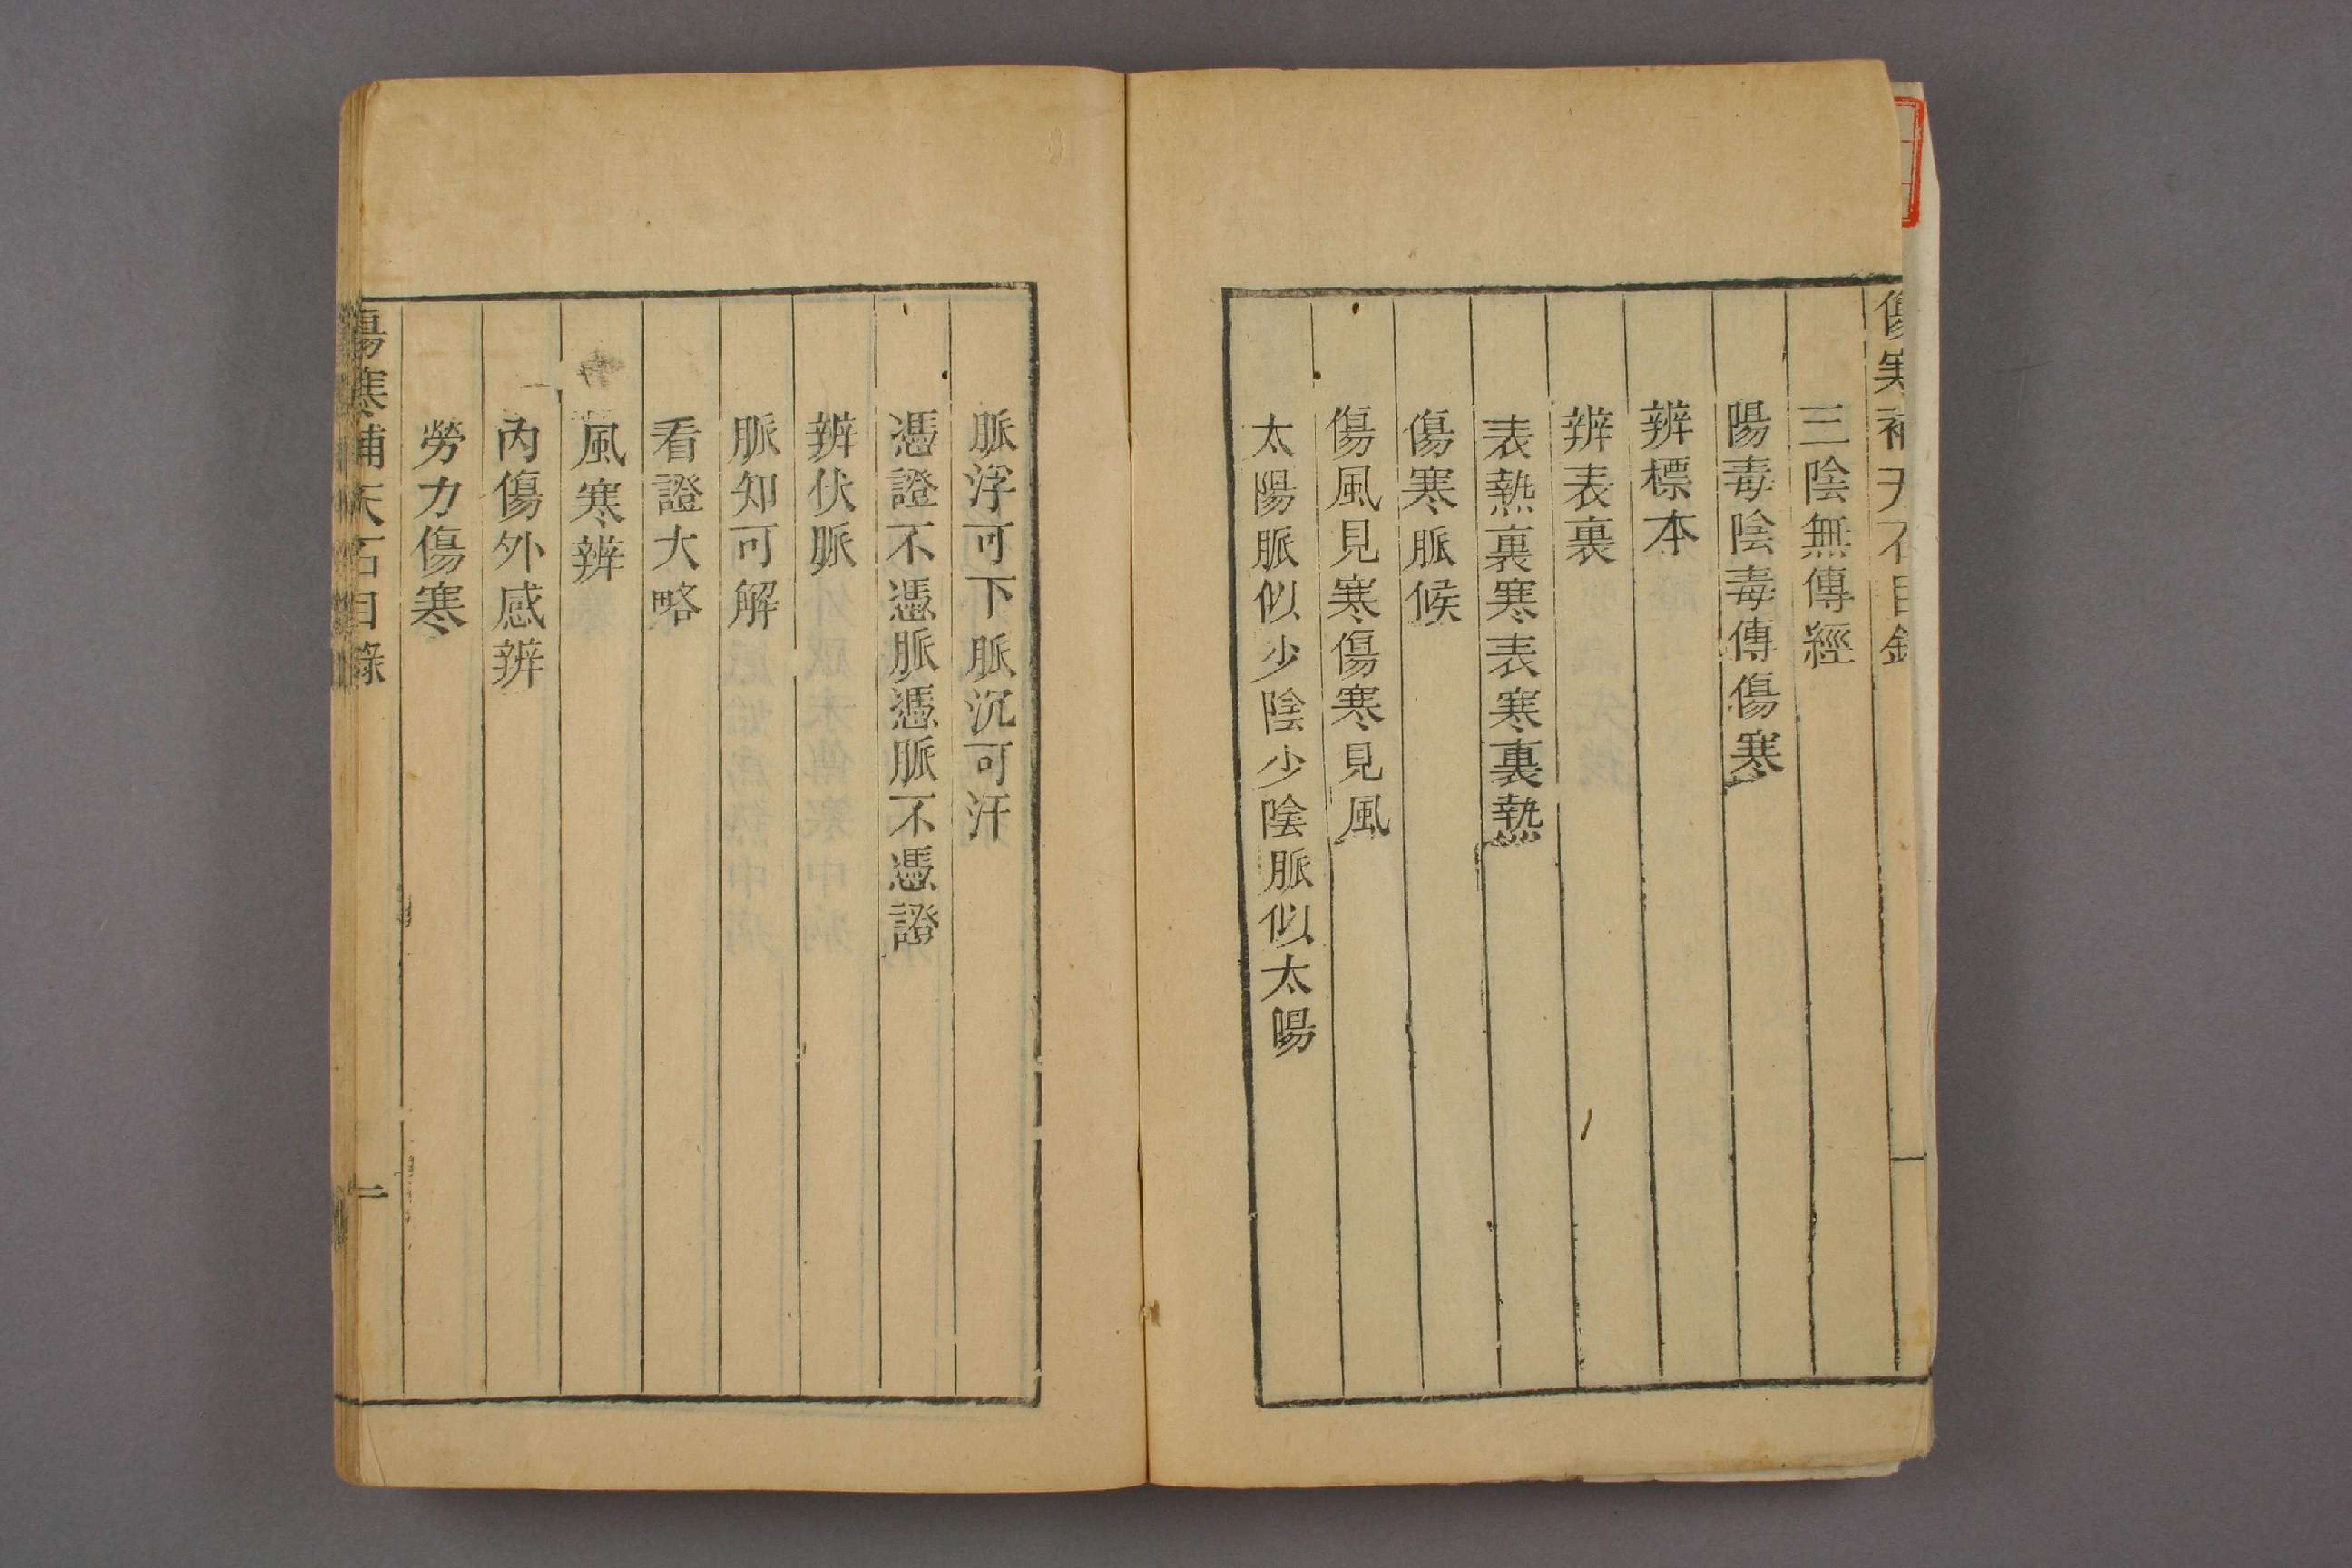 傷寒補天石目錄
三陰無傳經
陽毒陰毒傳傷寒
辨標本
辨表裏
表熱裏寒表寒裏熱
傷寒脈候
傷風見寒傷寒見風
太陽脈似少陰少陰脈似太陽
脈浮可下脈沉可汗
憑證不憑脈憑脈不憑證
辨伏脈
脈知可解
看證大略
風寒辨
內傷外感辨
勞力傷寒
傷寒補天石目錄
二